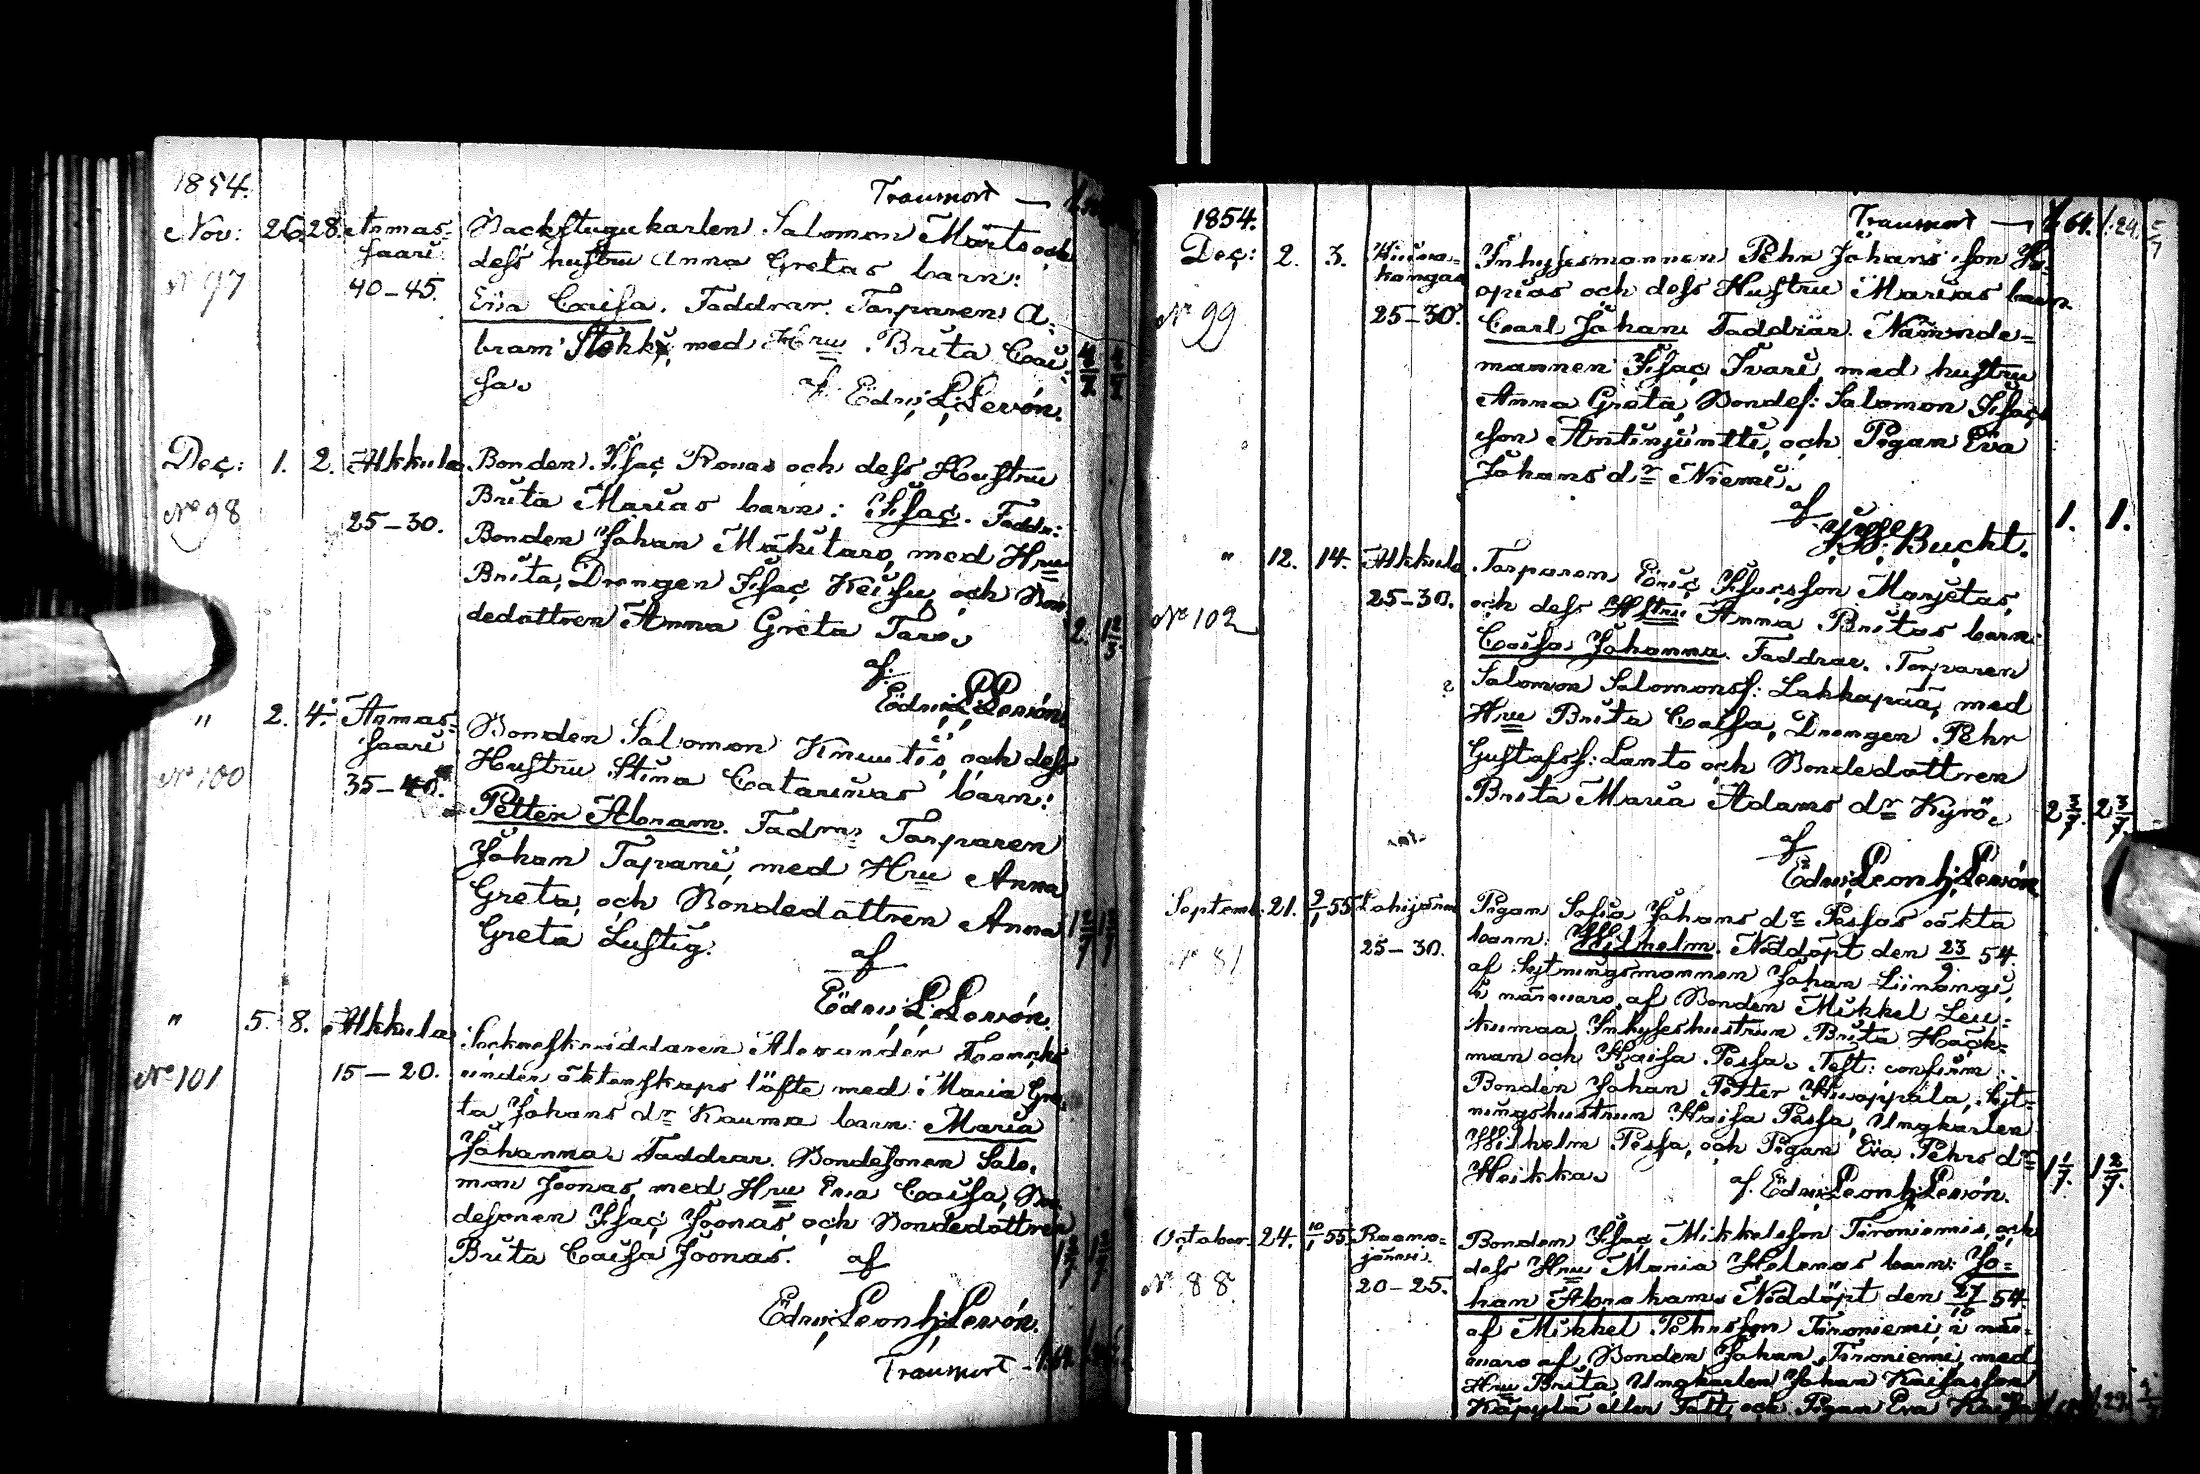 1854.
Transport —
Nov: 26. 28. Armas-
saari
40–45.
N° 97
Backstugukarlen Salomon Märts och
dess hustru Anna Gretas barn:
Eva Caisa. Faddrar. Torparen A-
bram Stokki, med Hru Brita Cai-
sa.
af Edv: L: Levón.
Dec: 1. 2. Alkkula
N° 98
25–30.
Bonden Isac Rovas och dess Hustru
Brita Marias barn: Isac. Faddr:
Bonden Johan Mäkitaro, med Hru
Brita, Drengen Isac Keisu, och Bon-
dedottren Anna Greta Taro.
2. 1 2/3
af
Edv: L: Levón
" 2. 4. Armas-
saari
N° 100
35–40.
Bonden Salomon Knuutis, och dess
Hustru Stina Catarinas barn:
Petter Abram. Fadrr Torparen
Johan Tapani, med Hru Anna
Greta, och Bondedottren Anna
Greta Lustig.
af
Edv: L: Levón.
" 5. 8. Alkkula
N° 101
15–20.
Sockneskräddaren Alexander
under äktenskaps löfte med Maria Gre-
ta Johans dr Kauma barn: Maria
Johanna. Faddrar. Bondesonen Salo-
mon Joonas, med Hru Eva Caisa, Bon-
desonen Isac Joonas, och Bondedottren
Brita Caisa Joonas.
af
Edv: Leonh: Levón.
Transport –
1854.
Transport — 164. 124. 5/7
Dec: 2. 3.
kangas
N° 99
25–30.
Inhysesmannen Pehr Johans son Ku-
opias och dess Hustru Marias barn
Carl Johan Faddrar. Nämnde-
mannen Isac Ivari med hustru
Anna Greta, Bondes: Salomon Isacs
son Antinjuntti, och Pigan Eva
Johans dr Niemi.
af
Bucht.
1. 1.
" 12. 14. Alkkula
N° 102
25–30.
Torparen Eric Isacsson Marjetas,
och dess Hstru Anna Britas barn:
Caisa Johanna. Faddrar. Torparen
Salomon Salomonss: Lakkapää, med
Hru Brita Caisa, Drengen Pehr
Gustafss: Lanto och Bondedottren
Brita Maria Adams dr Kyrö.
2 3/7. 2 3/7.
af
Edv: Leonh: Levón
Septemb. 21. 9/1 55. Lohijärvi
N° 81
25–30.
Pigan Sofia Johans dr Pessas oäkta
barn: Wilhelm. Nöddöpt den 23/9 54.
af hytningsmannen Johan Liinangi,
i närvaro af Bonden Mikkel Leu-
kumaa, Inhyseshustrun Brita Häck-
man och Kaisa Pessa. Test: confirm:
Bonden Johan Petter Huoppila, hyt-
ningshustrun Kaisa Pessa, Ungkarlen
Wilhelm Pessa, och Pigan Eva Pehrs dr
Heikka.
af Edv: Leonh: Levón.
October. 24. 10/1 55. Raano-
järvi.
N° 88
20–25.
Bonden Isac Mikkelsson Tironiemis, och
dess Hru Maria Helenas barn: Jo-
han Abraham. Nöddöpt den 27/10 54.
af Mikkel Pehrsson Tironiemi, i när-
varo af Bonden Johan Tironiemi, med
Hru Brita, Ungkarlen Johan Kaisasson
Käpylä eller Falt, och Pigan Eva Kaisa